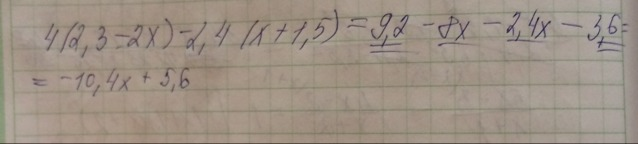 4(2,3-2x)-2,4(x+1,5)=9,2-8x-2,4x-3,6=
=-10,4x+5,6